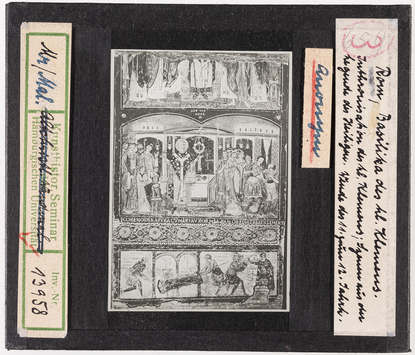 Mr/Mal.
Kunsthistor Seminar
Hamburgischen Universität
Inv.-Nr.
13958
Anonymus
3
Rom, Basilika des hl. Klemens.
Inthronisation des hl. Klemens; Szenen aus der
Legende des Heiligen. Wende des 11. zum 12. Jahrh.